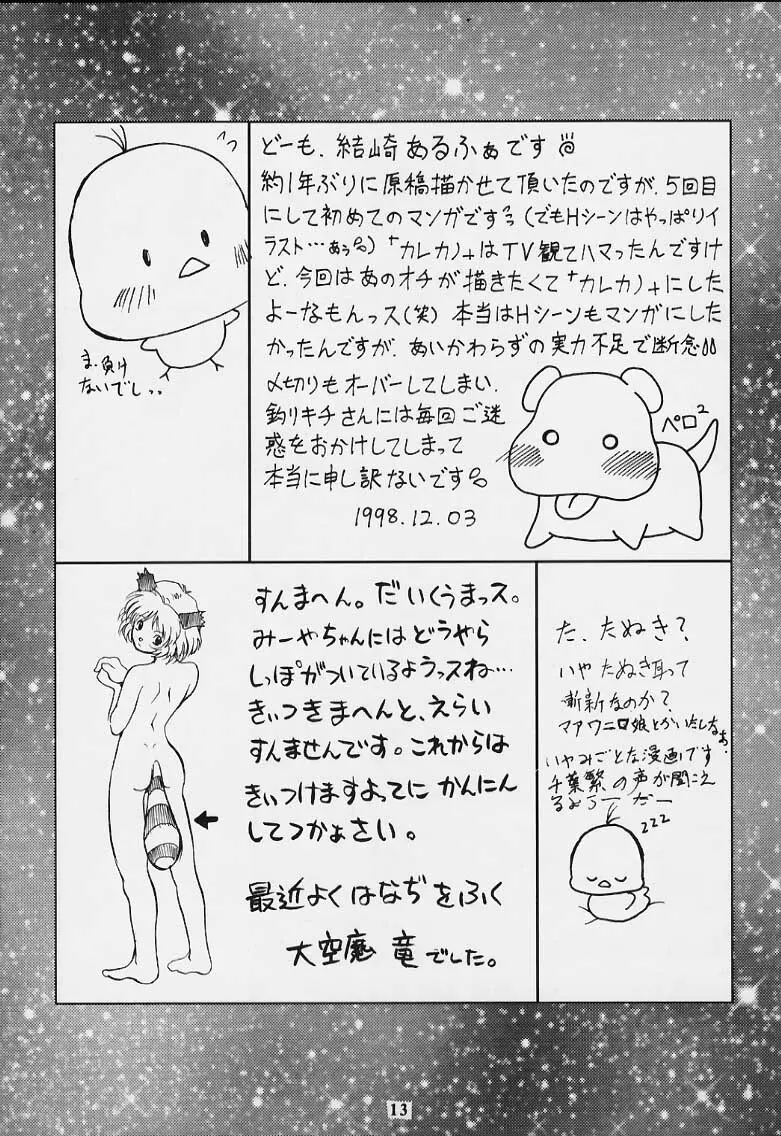 どーも、結崎あるふぁです
約1年ぶりに原稿描かせて頂いたのですが、5回目
にして初めてのマンガですっ(でもHシーンはやっぱりイ
ラスト…あぅ)「カレカノ」はTV観てハマったんですけ
ど、今回はあのオチが描きたくて「カレカノ」にした
よーなもんっス(笑) 本当はHシーンもマンガにした
かったんですが、あいかわらずの実力不足で断念
〆切りもオーバーしてしまい、
釣りキチさんには毎回ご迷
惑をおかけしてしまって
本当に申し訳ないです
1998.12.03
ペロ2
ま、負け
ないでし
すんまへん。だいくうまっス。
みーやちゃんにはどうやら
しっぽがついているようっスね…
きぃつきまへんと、えらい
すんませんです。これからは
きぃつけますよってに かんにん
してつかぁさい。
最近よくはなぢをふく
大空魔 竜でした。
た、たぬき?
いや たぬき耳って
斬新なのか?
マァワニ口娘とかいたしなぁ、
いやみごとな漫画です
千葉繁の声が聞こえ
るよぅー だー
zzz
13